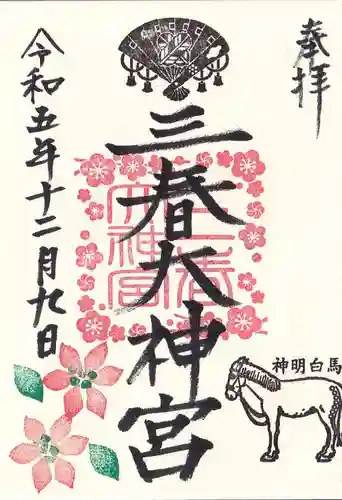 奉拝
三春大神宮
三春大神宮
令和五年十二月九日
神明白馬